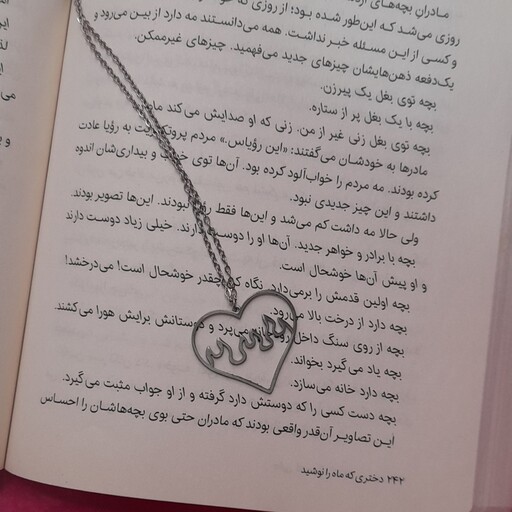 مادران بچه‌های
روزی می‌شد که این‌طور شده بود؛ از روزی که
و کسی از این مسئله خبر نداشت. همه می‌دانستند مه دارد از بین می‌رود و
یک‌دفعه ذهن‌هایشان چیزهای جدید می‌فهمید. چیزهای غیرممکن.
بچه توی بغل یک پیرزن.
بچه با یک بغل پر از ستاره.
بچه توی بغل زنی غیر از من. زنی که او صدایش می‌کند
مادرها به خودشان می‌گفتند: «این رؤیاس.» مردم به رؤیا عادت
کرده بودند. مه مردم را خواب‌آلود کرده بود. آن‌ها توی و بیداری‌شان اندوه
داشتند و این چیز جدیدی نبود.
ولی حالا مه داشت کم می‌شد و این‌ها فقط نبودند. این‌ها تصویر بودند.
بچه با برادر و خواهر جدید. آن‌ها او را دوست دارند. خیلی زیاد دوست دارند
و او پیش آن‌ها خوشحال است.
بچه اولین قدمش را برمی‌دارد. نگاه کن چقدر خوشحال است! می‌درخشد!
بچه دارد از درخت بالا می‌رود.
بچه از روی سنگ داخل رودخانه می‌پرد و دوستانش برایش هورا می‌کشند.
بچه یاد می‌گیرد بخواند.
بچه دارد خانه می‌سازد.
بچه دست کسی را که دوستش دارد گرفته و از او جواب مثبت می‌گیرد.
این تصاویر آن‌قدر واقعی بودند که مادران حتی بوی بچه‌هاشان را احساس
۲۴۲ دختری که ماه را نوشید